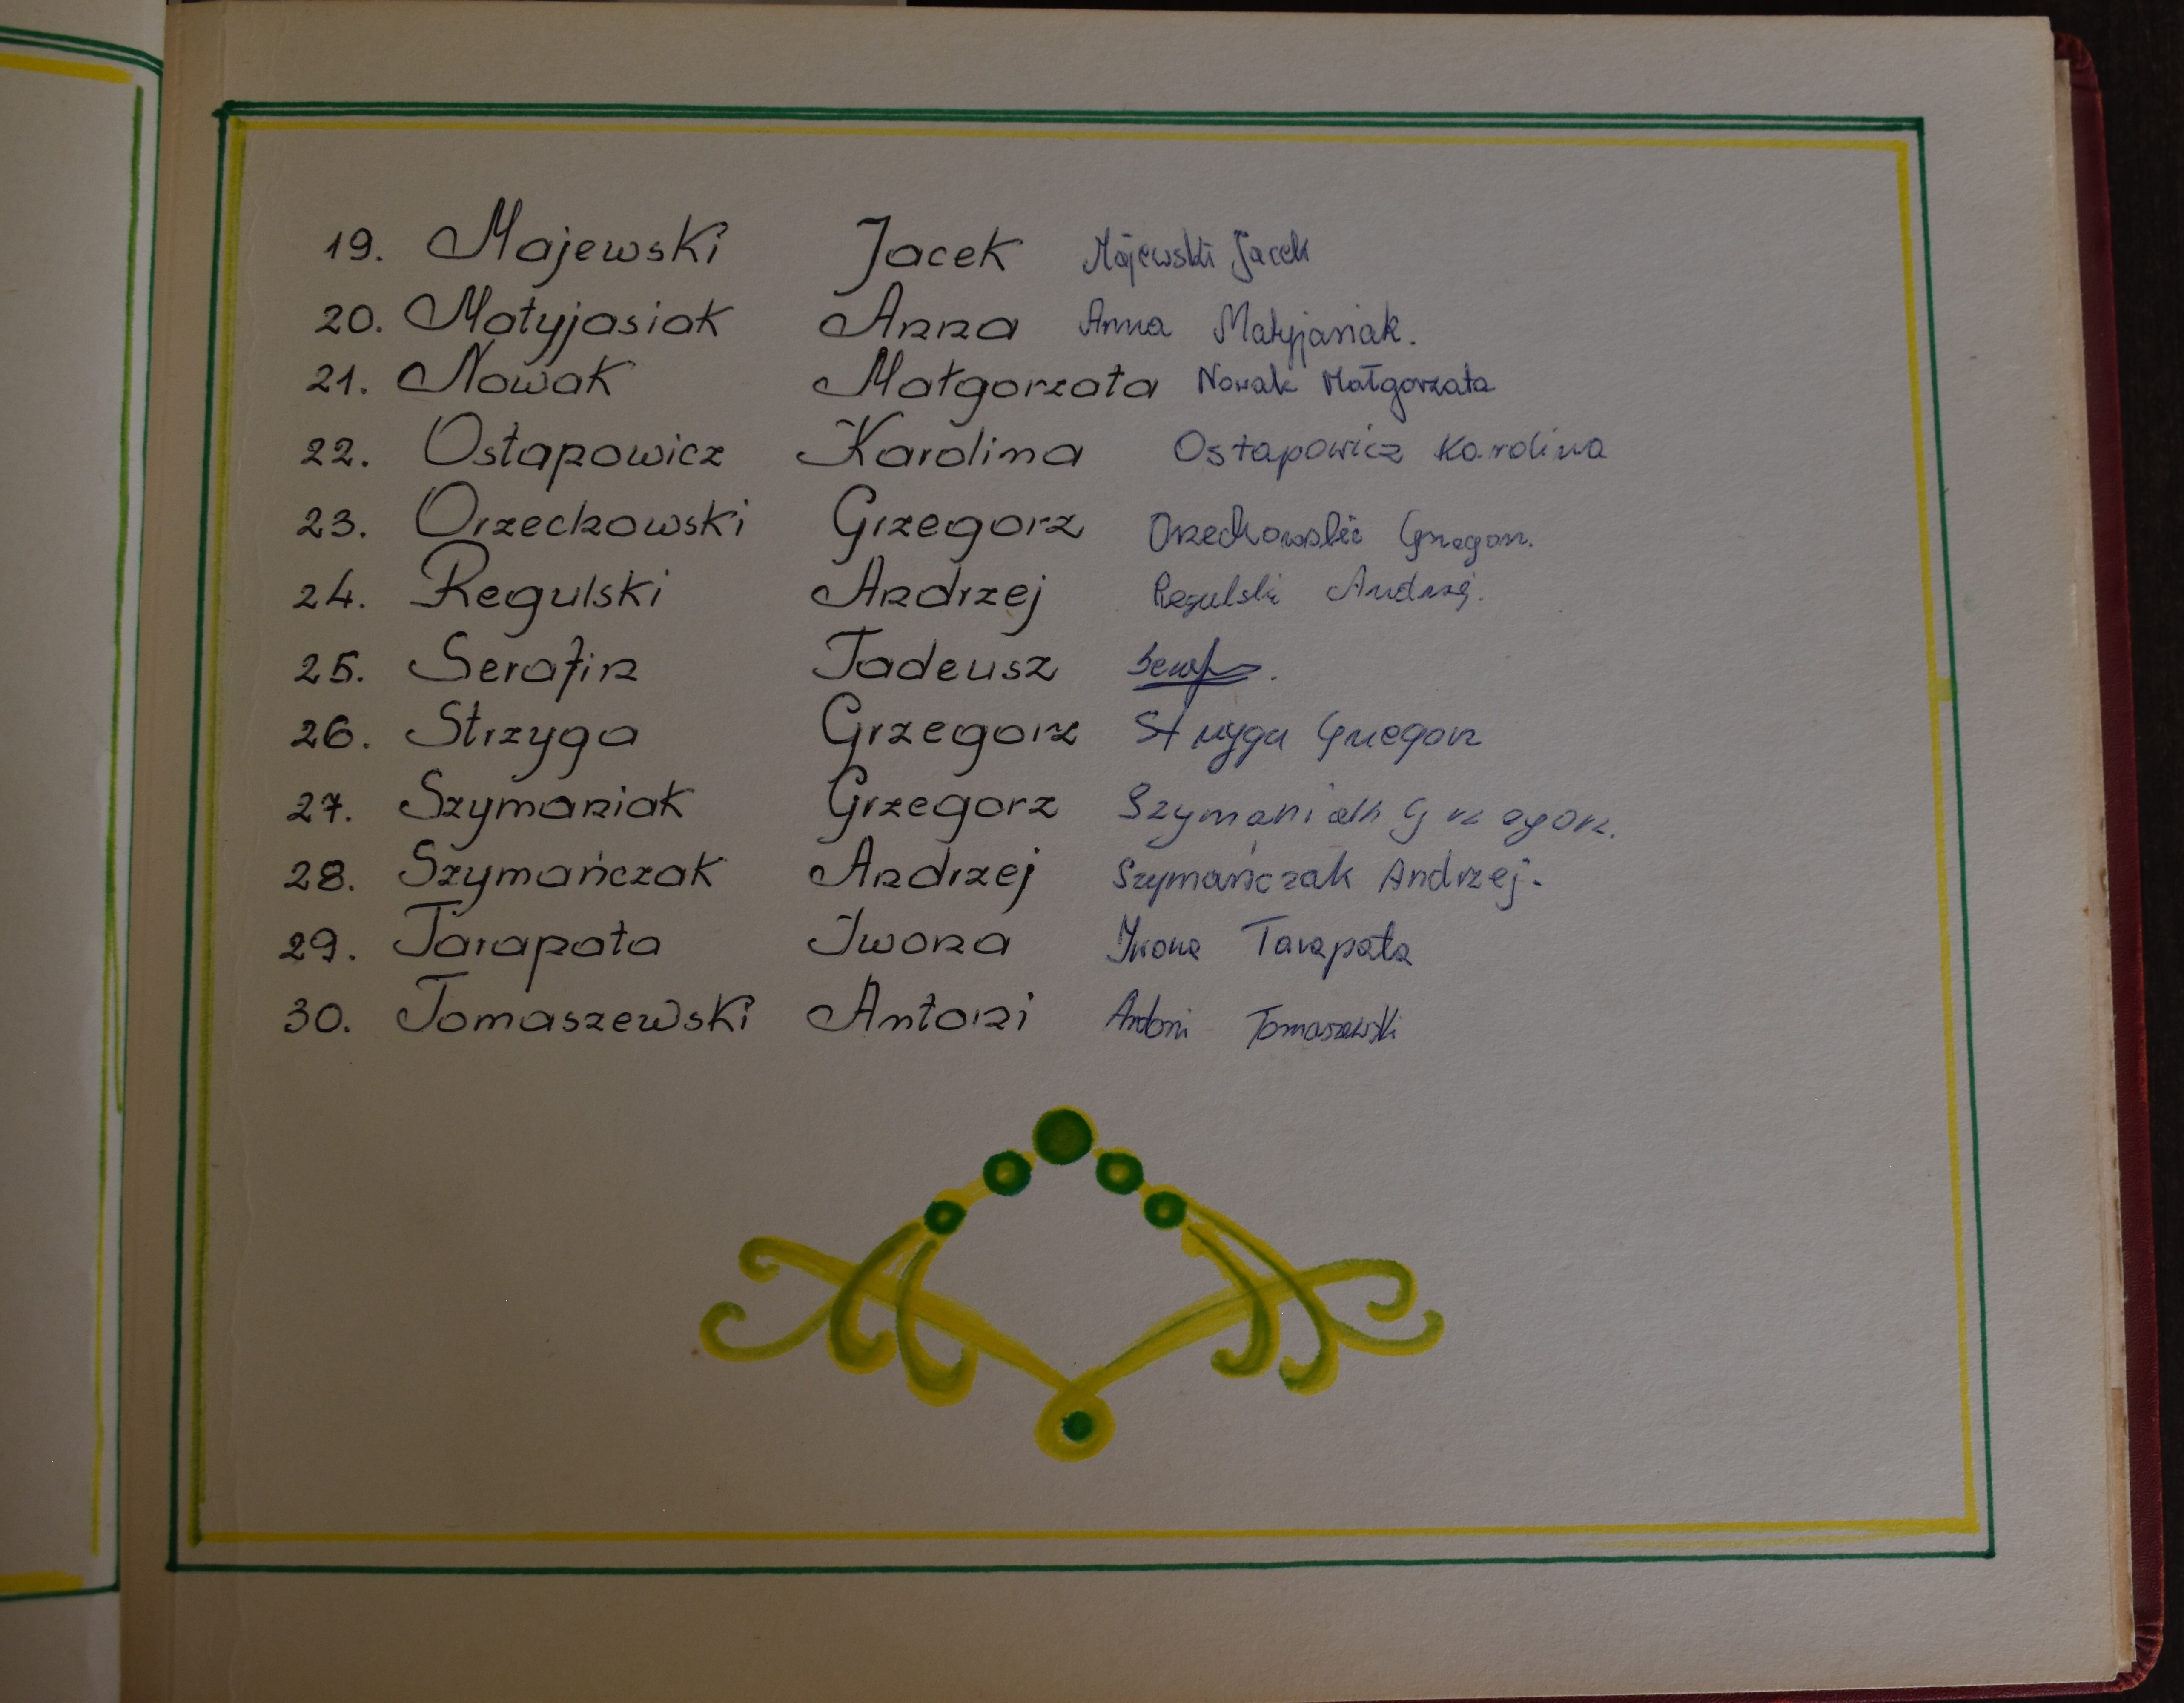 19. Majewski Jacek Majewski Jacek
20. Matyjasiak Anna Anna Matyjasiak.
21. Nowak Małgorzata Nowak Małgorzata
22. Ostapowicz Karolina Ostapowicz Karolina
23. Orzechowski Grzegorz Orzechowski Grzegorz.
24. Regulski Andrzej Regulski Andrzej.
25. Serafin Tadeusz
26. Strzyga Grzegorz Strzyga Grzegorz
27. Szymaniak Grzegorz Szymaniak Grzegorz.
28. Szymańczak Andrzej Szymańczak Andrzej.
29. Tarapata Iwona Iwona Tarapata
30. Tomaszewski Antoni Antoni Tomaszewski